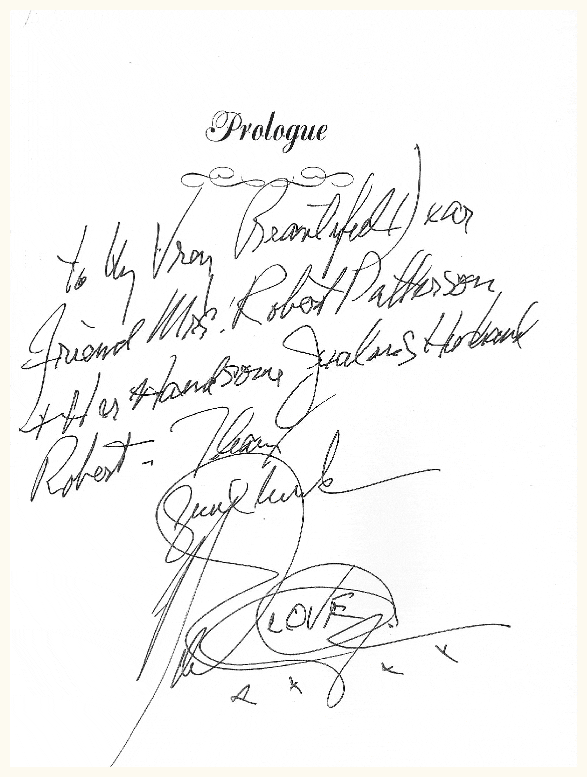 Prologue
to My Very Beautiful Dear
Friend Mrs. Robert Patterson
+ Her Handsome Jealous Husband
Robert -
LOVE
x x x x